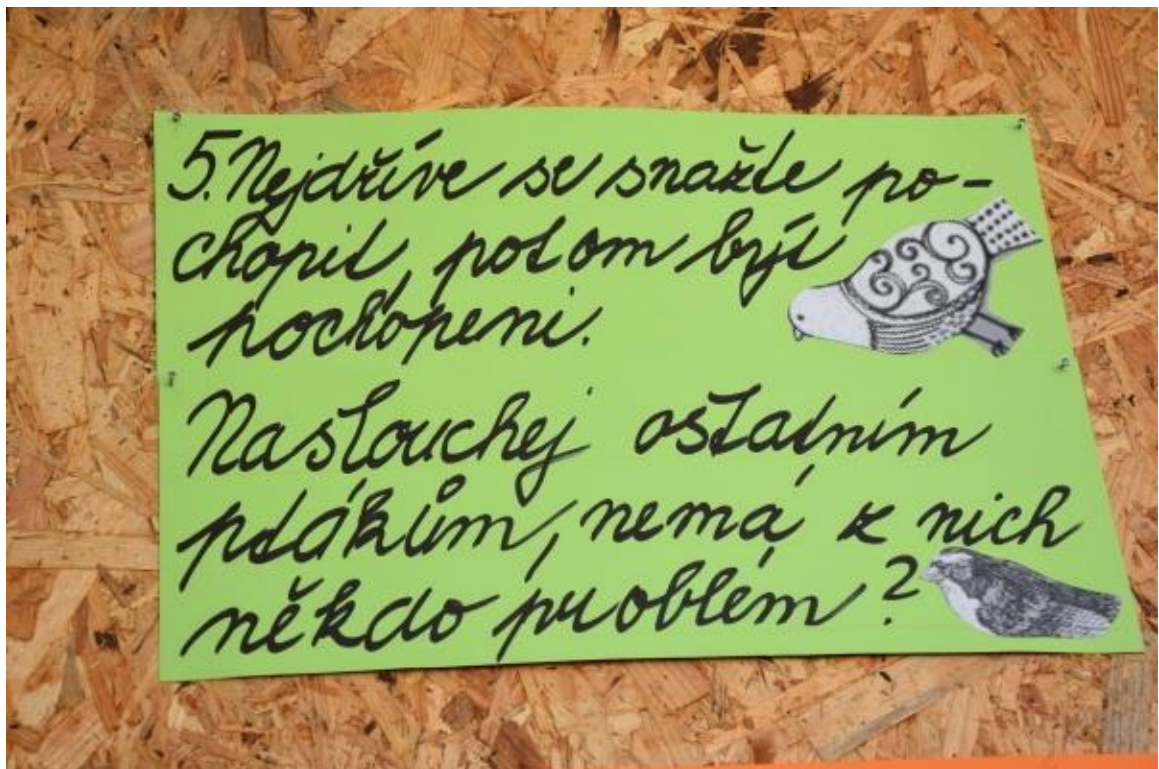 5. Nejdříve se snažte po-
chopit, potom být
pochopeni.
Naslouchej ostatním
ptákům, nemá z nich
někdo problém?